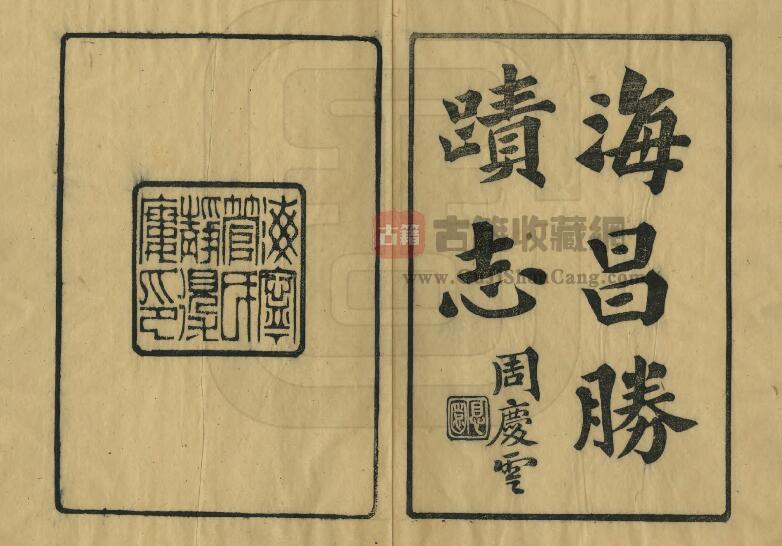 海昌勝
蹟志
周慶雲
海寧
管氏
靜得
廔印
古籍
古籍收藏網
www.GuJiShouCang.com